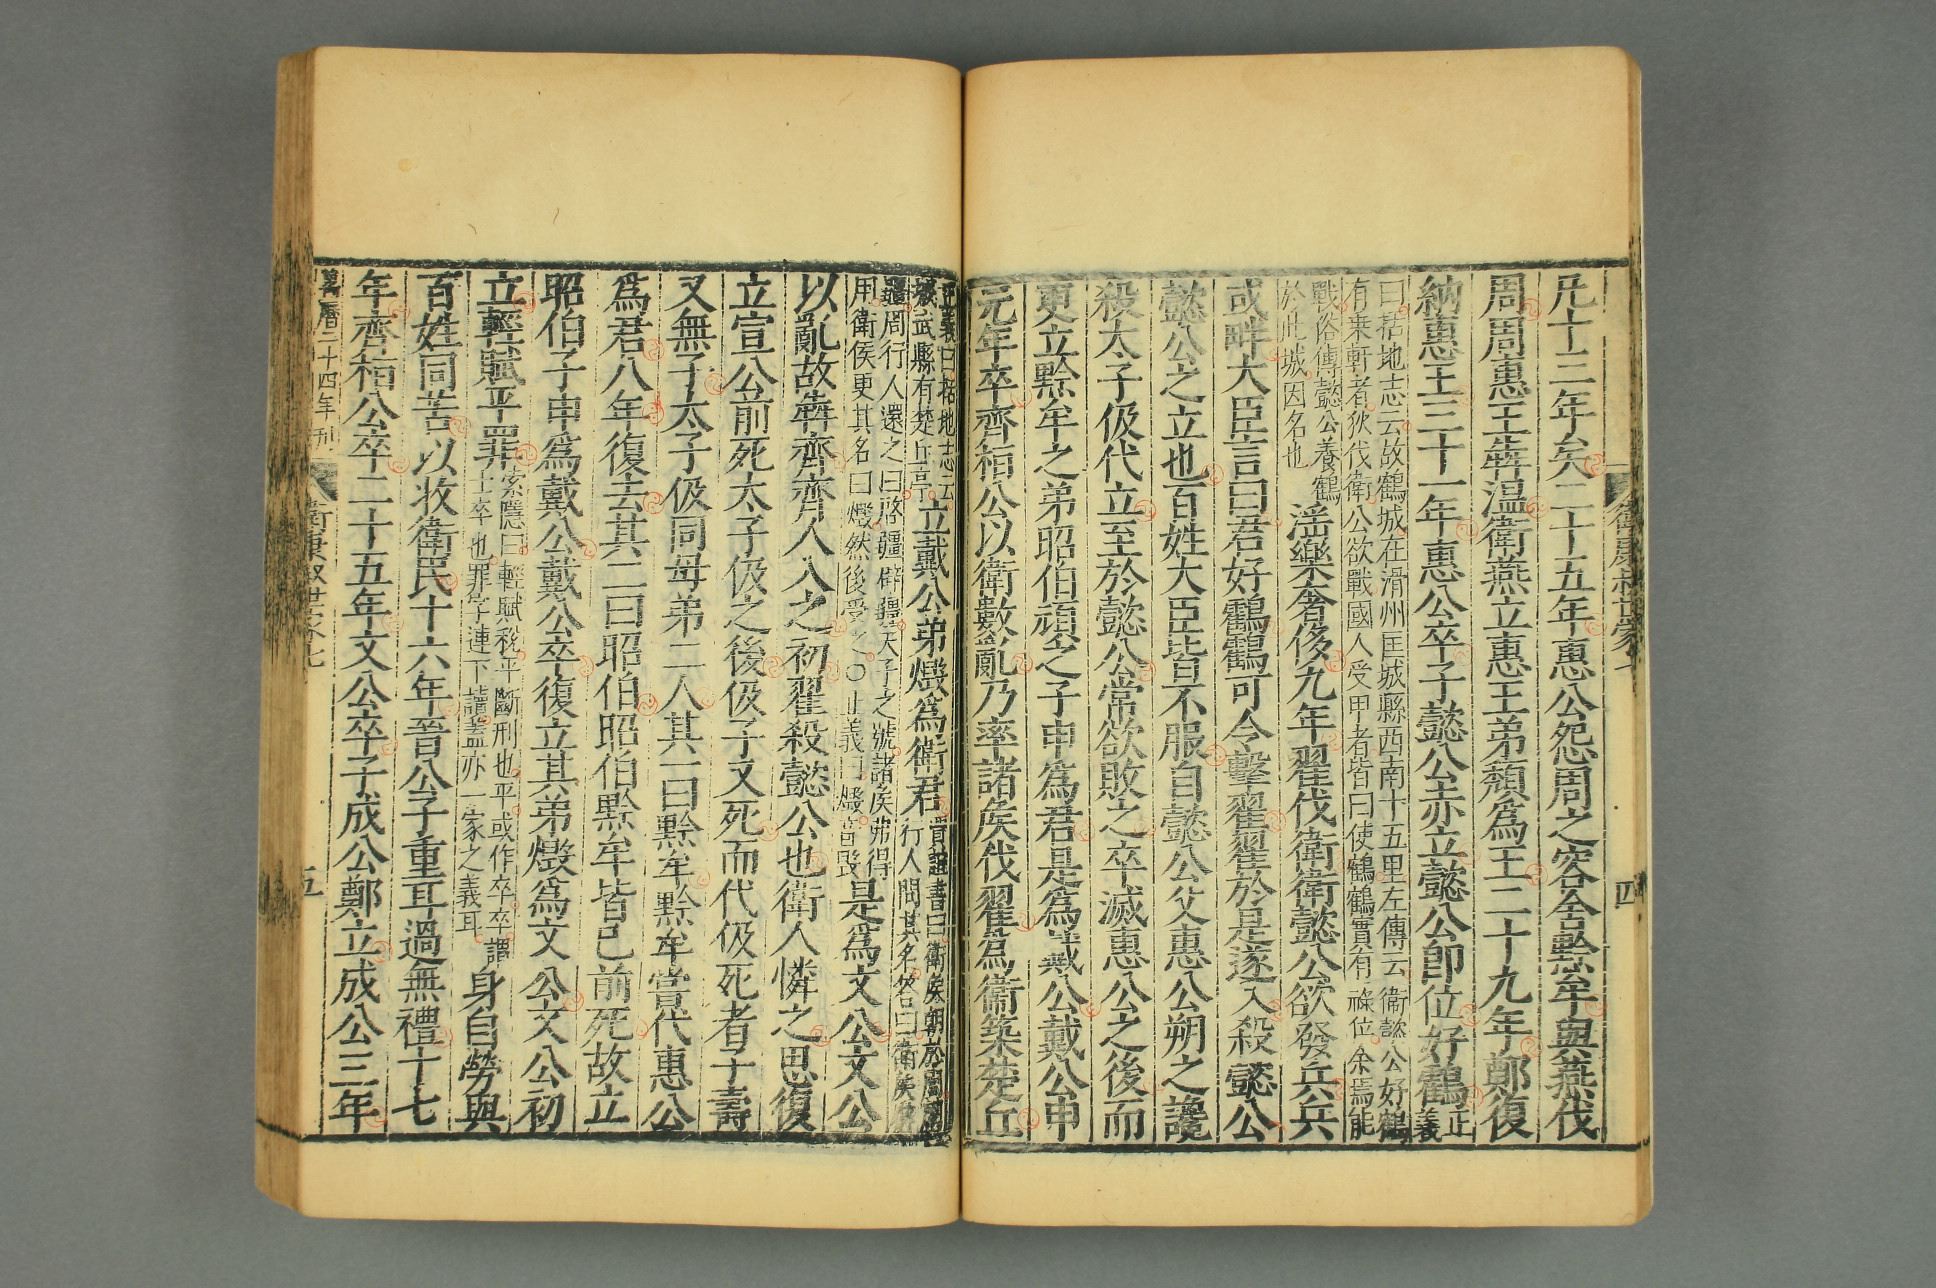 衛康叔世家七
四
凡十三年矣二十五年惠公怨周之容舍黔牟與燕伐
周周惠王犇溫衛燕立惠王弟頹為王二十九年鄭復
納惠王三十一年惠公卒子懿公赤立懿公即位好鶴正
義
曰括地志云故鶴城在滑州匡城縣西南十五里左傳云衛懿公好鶴
有乗軒者狄伐衛公欲戰國人受甲者皆曰使鶴鶴實有祿位余焉能
戰俗傳懿公養鶴
於此城因名也
淫樂奢侈九年翟伐衛衛懿公欲發兵兵
或畔大臣言曰君好鶴鶴可令擊翟翟於是遂入殺懿公
懿公之立也百姓大臣皆不服自懿公父惠公朔之讒
殺太子伋代立至於懿公常欲敗之卒滅惠公之後而
更立黔牟之弟昭伯頑之子申為君是為戴公戴公申
元年卒齊桓公以衛數亂乃率諸侯伐翟為衛築楚丘
正義曰括地志云
城武縣有楚丘亭
立戴公弟燬為衛君
賈誼書曰衛侯朝於周周
行人問其名荅曰衛侯辟
疆周行人還之曰啓疆辟疆天子之號諸侯弗得
用衛侯更其名曰燬然後受之○正義曰燬音毁
是為文公文公
以亂故犇齊齊人入之初翟殺懿公也衛人憐之思復
立宣公前死太子伋之後伋子又死而代伋死者子壽
又無子太子伋同母弟二人其一曰黔牟黔牟嘗代惠公
為君八年復去其二曰昭伯昭伯黔牟皆已前死故立
昭伯子申為戴公戴公卒復立其弟燬為文公文公初
立輕賦平罪
索隱曰輕賦稅平斷刑也平或作卒卒謂
士卒也罪字連下讀蓋亦一家之義耳
身自勞與
百姓同苦以收衛民十六年晉公子重耳過無禮十七
年齊桓公卒二十五年文公卒子成公鄭立成公三年
萬曆二十四年刊
衛康叔世家七
五